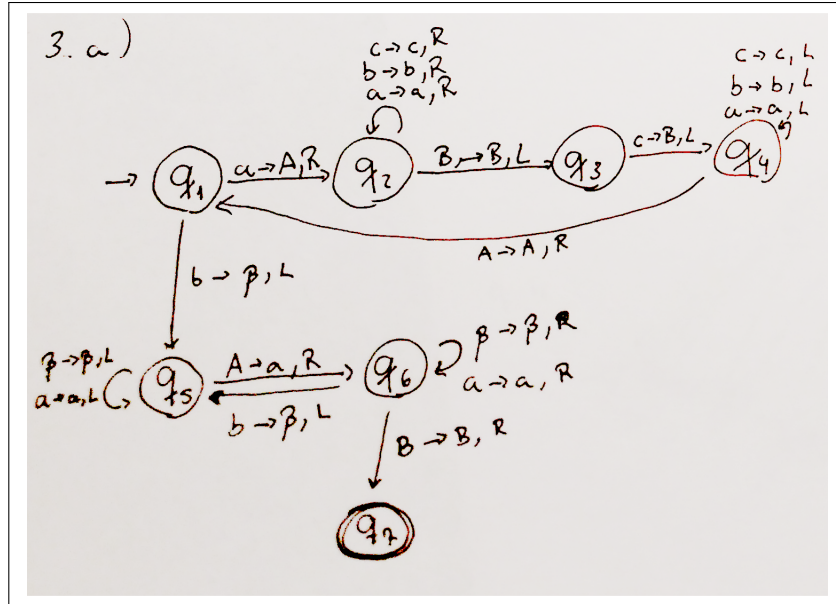 3. a)
c → c, R
b → b, R
a → a, R
c → c, L
b → b, L
a → a, L
q1
a → A, R
q2
B → B, L
q3
c → B, L
q4
A → A, R
b → β, L
β → β, L
a → a, L
q5
A → a, R
b → β, L
q6
β → β, R
a → a, R
B → B, R
q7